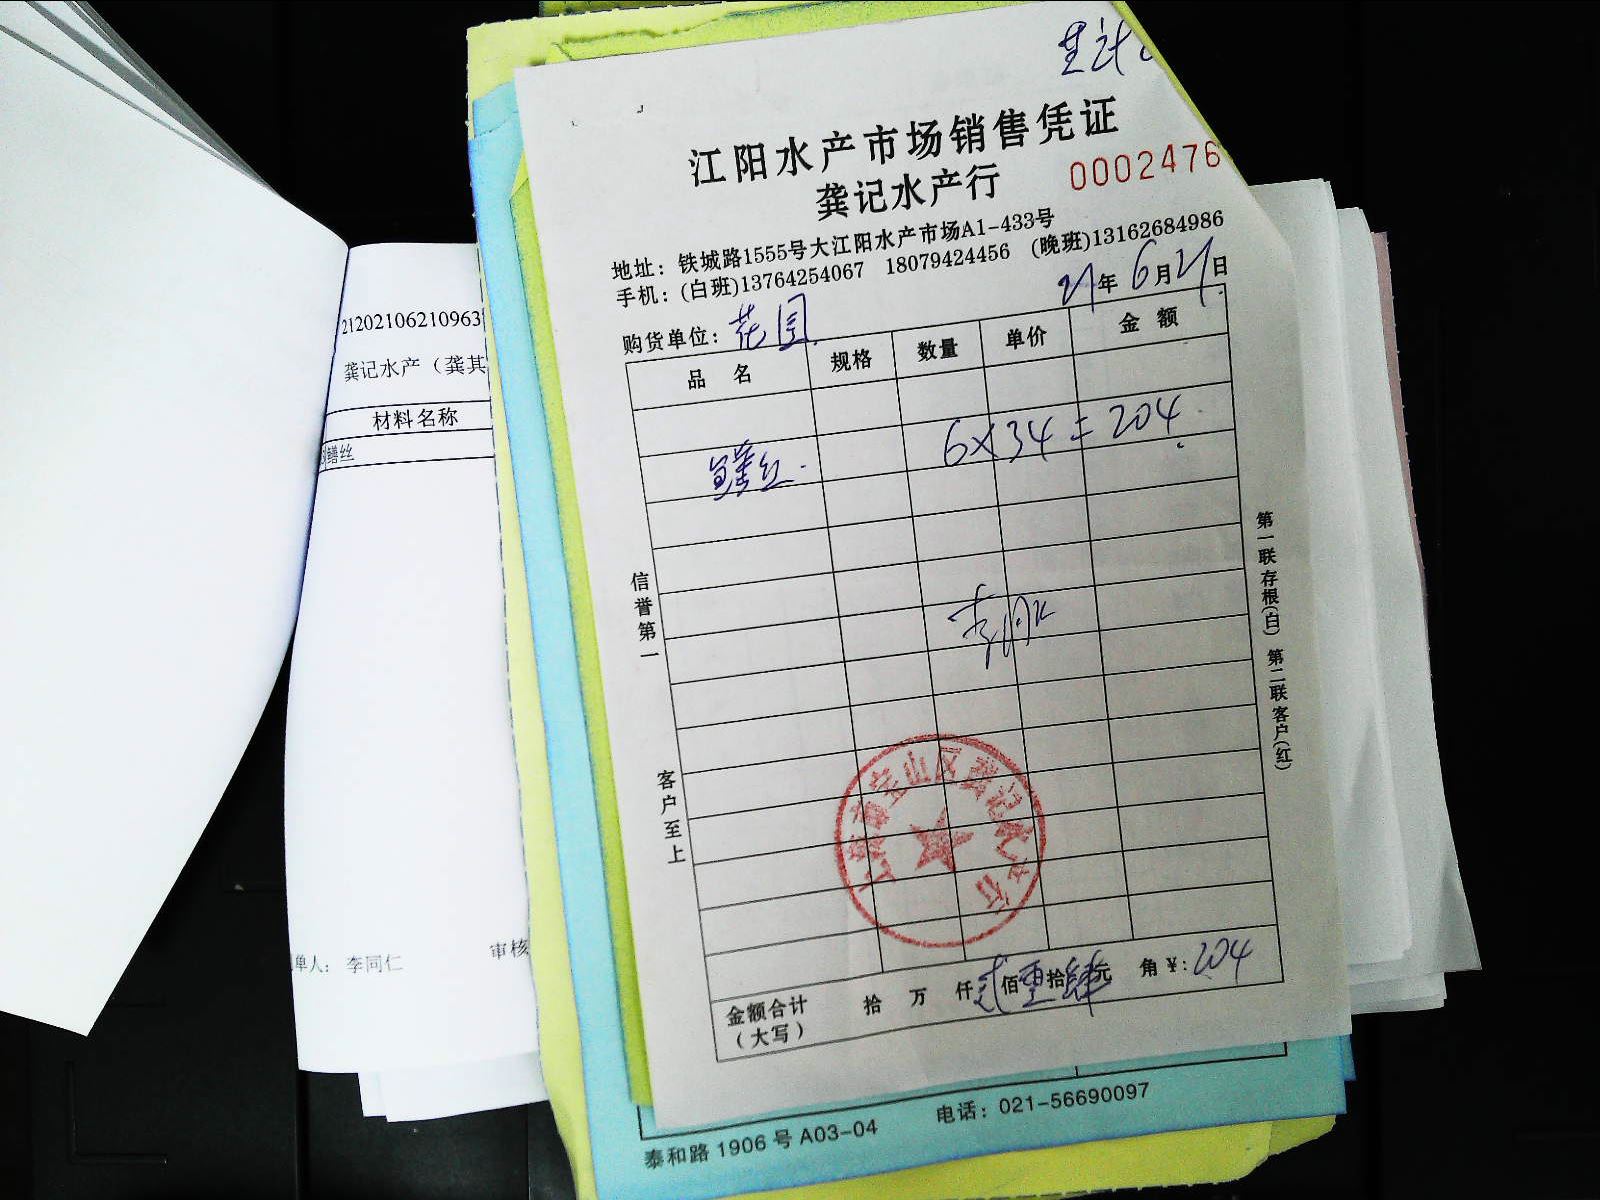 江阳水产市场销售凭证
龚记水产行
0002476
地址：铁城路1555号大江阳水产市场A1-433号
手机：(白班)13764254067 18079424456 (晚班)13162684986
21年6月21日
购货单位：花园
品名 规格 数量 单价 金额
鳝丝 6×34=204
信誉第一
客户至上
第一联存根(白) 第二联客户(红)
上海市宝山区龚记水产行
金额合计（大写） 拾 万 仟贰佰零拾肆元 角¥:204
泰和路1906号A03-04 电话：021-56690097
21202106210963
龚记水产（龚其
材料名称
鳝丝
单人：李同仁 审核